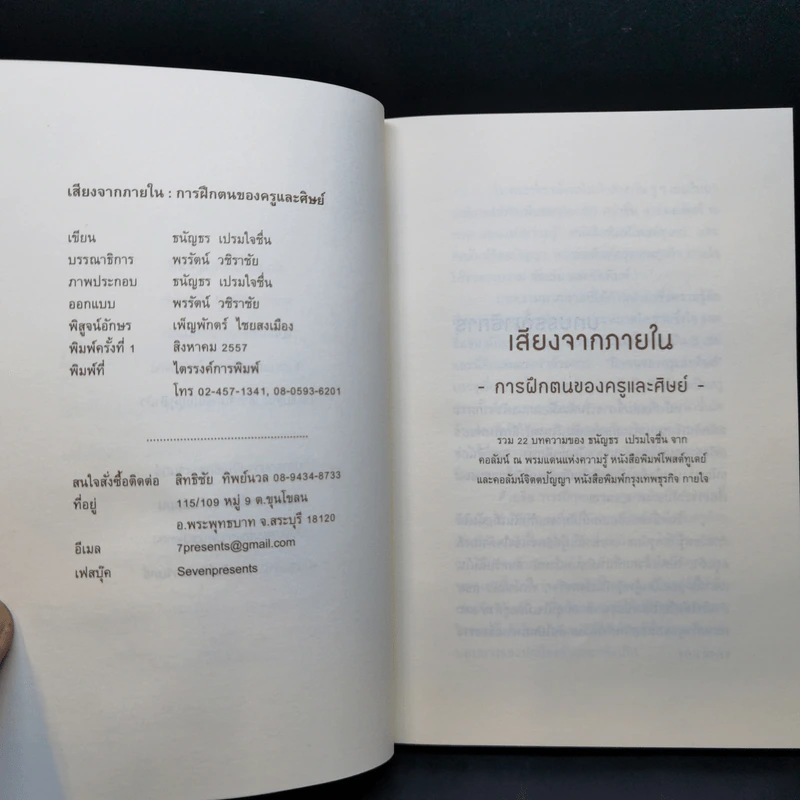 เสียงจากภายใน : การฝึกตนของครูและศิษย์
เขียน ธนัญธร เปรมใจชื่น
บรรณาธิการ พรรัตน์ วชิราชัย
ภาพประกอบ ธนัญธร เปรมใจชื่น
ออกแบบ พรรัตน์ วชิราชัย
พิสูจน์อักษร เพ็ญพักตร์ ไชยสงเมือง
พิมพ์ครั้งที่ 1 สิงหาคม 2557
พิมพ์ที่ ไตรรงค์การพิมพ์
โทร 02-457-1341, 08-0593-6201
สนใจสั่งซื้อติดต่อ สิทธิชัย ทิพย์นวล 08-9434-8733
ที่อยู่ 115/109 หมู่ 9 ต.ขุนโขลน
อ.พระพุทธบาท จ.สระบุรี 18120
อีเมล 7presents@gmail.com
เฟสบุ๊ค Sevenpresents
เสียงจากภายใน
- การฝึกตนของครูและศิษย์ -
รวม 22 บทความของ ธนัญธร เปรมใจชื่น จาก
คอลัมน์ ณ พรมแดนแห่งความรู้ หนังสือพิมพ์โพสต์ทูเดย์
และคอลัมน์จิตตปัญญา หนังสือพิมพ์กรุงเทพธุรกิจ กายใจ